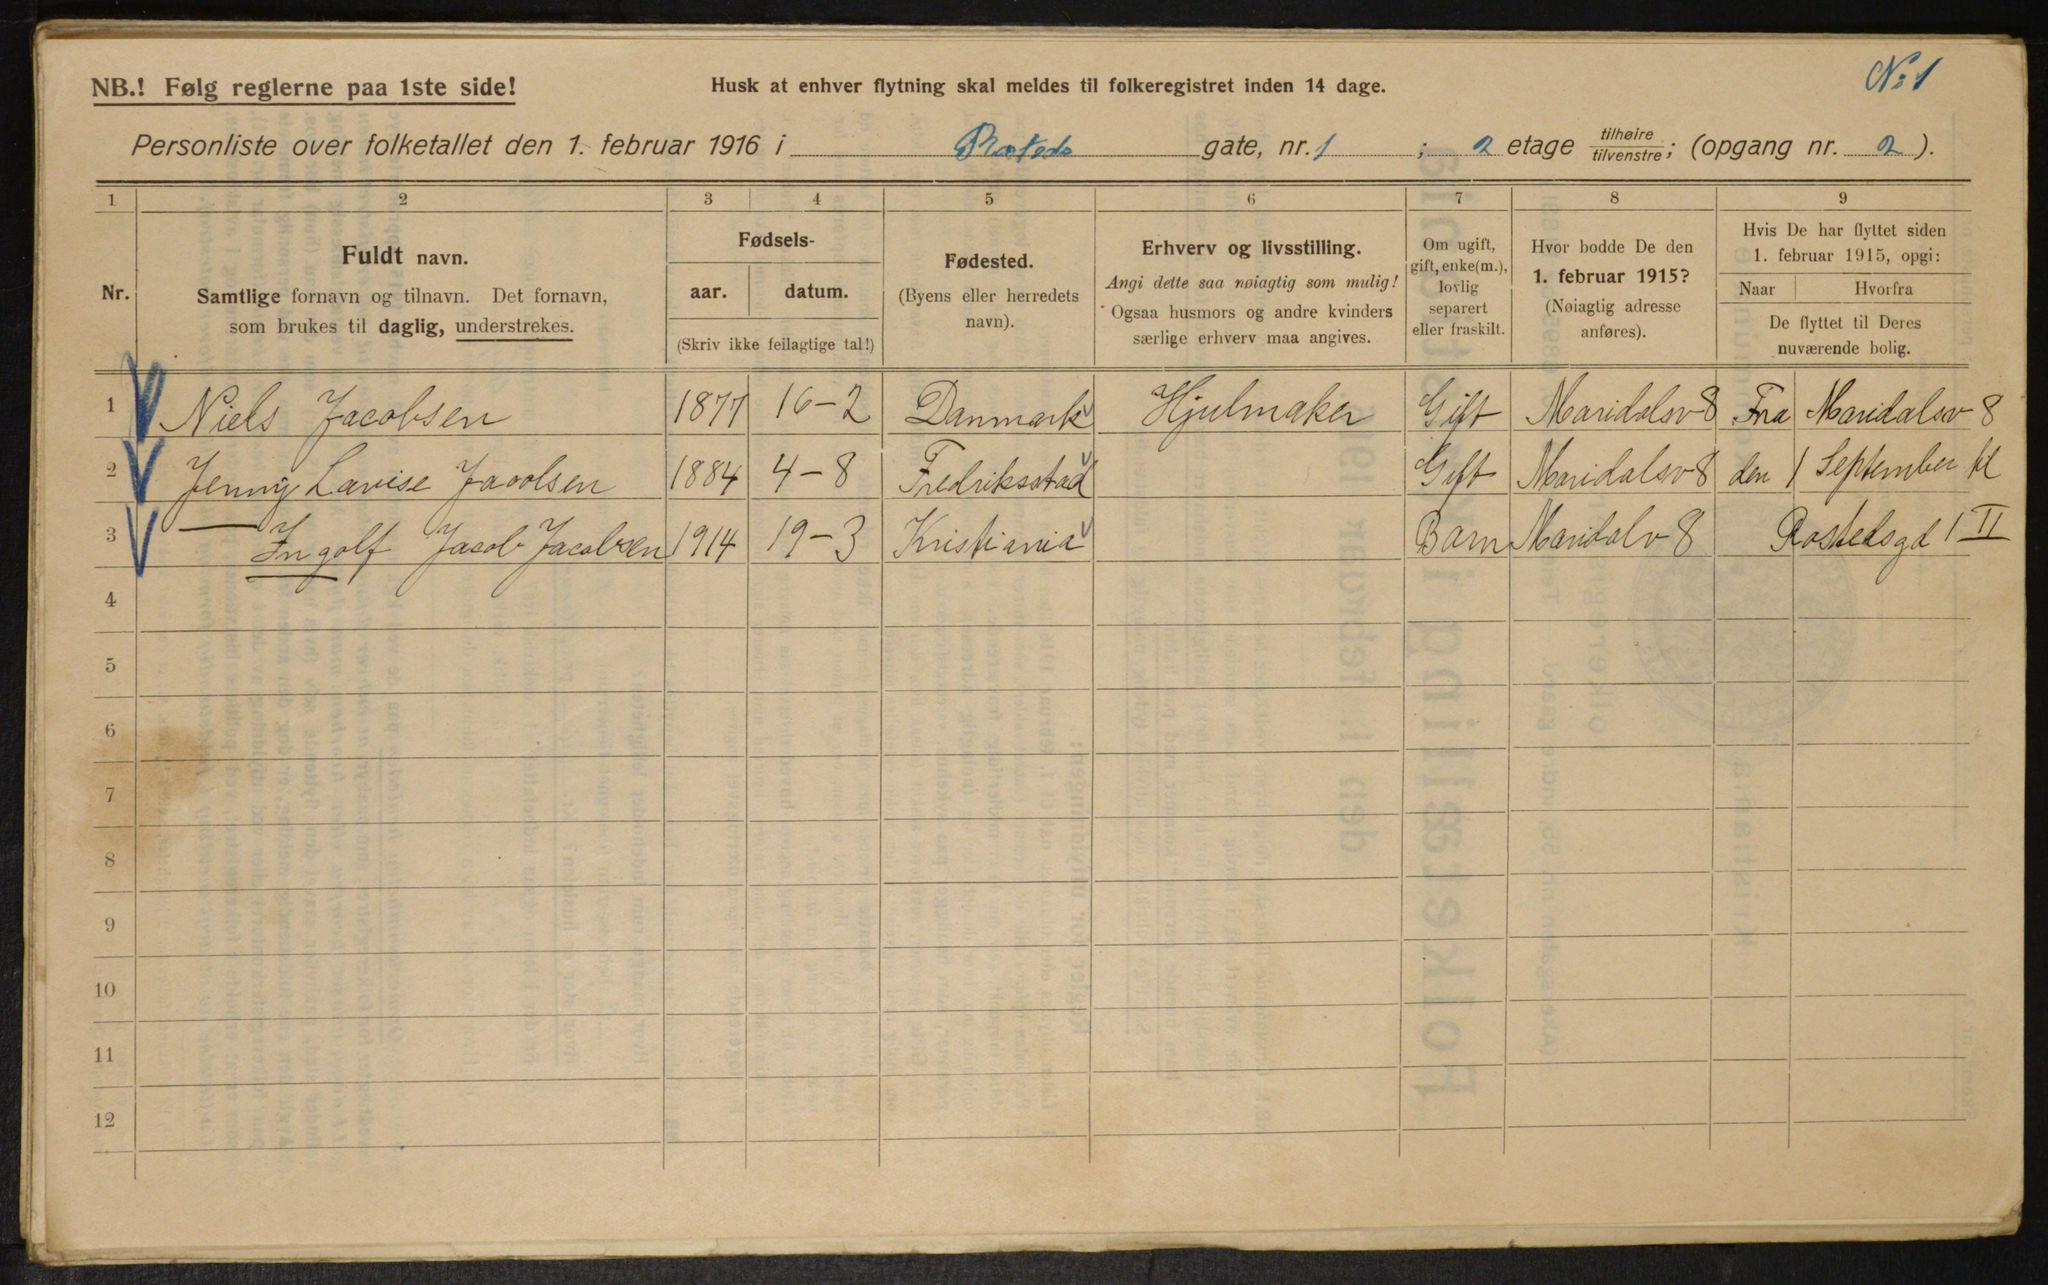 NB.! Følg reglerne paa 1ste side!
Husk at enhver flytning skal meldes til folkeregistret inden 14 dage.
No 1
Personliste over folketallet den 1. februar 1916 i Rosteds gate, nr. 1 ; 2 etage tilhøire/tilvenstre; (opgang nr. 2 ).
1 2 3 4 5 6 7 8 9
Nr.
Fuldt navn.
Samtlige fornavn og tilnavn. Det fornavn,
som brukes til daglig, understrekes.
Fødsels-
aar. datum.
(Skriv ikke feilagtige tal!)
Fødested.
(Byens eller herredets
navn).
Erhverv og livsstilling.
Angi dette saa nøiagtig som mulig!
Ogsaa husmors og andre kvinders
særlige erhverv maa angives.
Om ugift,
gift, enke(m.),
lovlig
separert
eller fraskilt.
Hvor bodde De den
1. februar 1915?
(Nøiagtig adresse
anføres).
Hvis De har flyttet siden
1. februar 1915, opgi:
Naar Hvorfra
De flyttet til Deres
nuværende bolig.
1 Niels Jacobsen 1877 16-2 Danmark Hjulmaker Gift Maridalsv 8 Fra Maridalsv 8
2 Jenny Lavise Jacolsen 1884 4-8 Fredriksstad Gift Maridalsv 8 den 1 September til
3 — Ingolf Jacob Jacobsen 1914 19-3 Kristiania Barn Maridalv 8 Rostedsgd 1 II
4
5
6
7
8
9
10
11
12